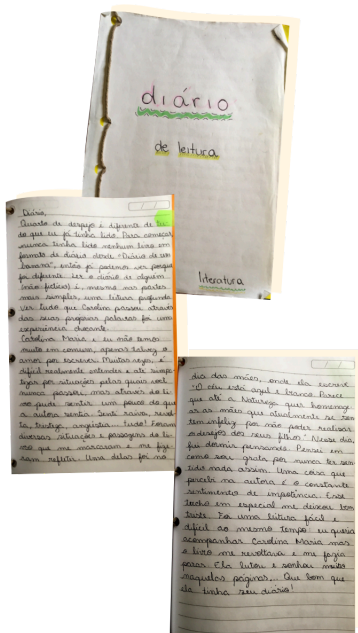 diário
de leitura
literatura
Diário,
Quarto de despejo é diferente de tu-
do que eu já tinha lido. Para começar,
nunca tinha lido nenhum livro em
formato de diário desde "Diário de um
banana", então já podemos ver porque
foi diferente. Ler o diário de alguém
(não fictício) é, mesmo nas partes
mais simples, uma leitura profunda.
Ver tudo que Carolina passou através
das suas próprias palavras foi uma
experiência
Carolina Maria e eu não temos
muito em comum, apenas talvez o
amor por escrever. Muitas vezes, é
difícil realmente entender e até
por situações pelas quais você
nunca passou, mas através do li-
vro pude sentir um pouco do que
a autora sentia. Senti raiva, revol-
ta, tristeza, angústia... Tudo! Foram
diversas situações e passagens do li-
vro que me marcaram e me fize-
ram refletir. Uma delas foi no
dia das mães, onde ela escreve
"O céu está azul e branco. Parece
que até a Natureza quer homenage-
ar as mães que atualmente se sen-
tem infeliz por não poder realisar
os desejos dos seus filhos." Nesse dia,
fui dormir pensando. Pensei em
como sou grata por nunca ter sen-
tido nada assim. Uma coisa que
percebi na autora é o constante
sentimento de impotência. Esse
trecho em especial me deixou bem
triste. Foi uma leitura fácil e
difícil ao mesmo tempo: eu queria
acompanhar Carolina Maria mas
o livro me revoltava e me fazia
parar. Ela lutou e sonhou muito
naquelas páginas... Que bom que
ela tinha seu diário!